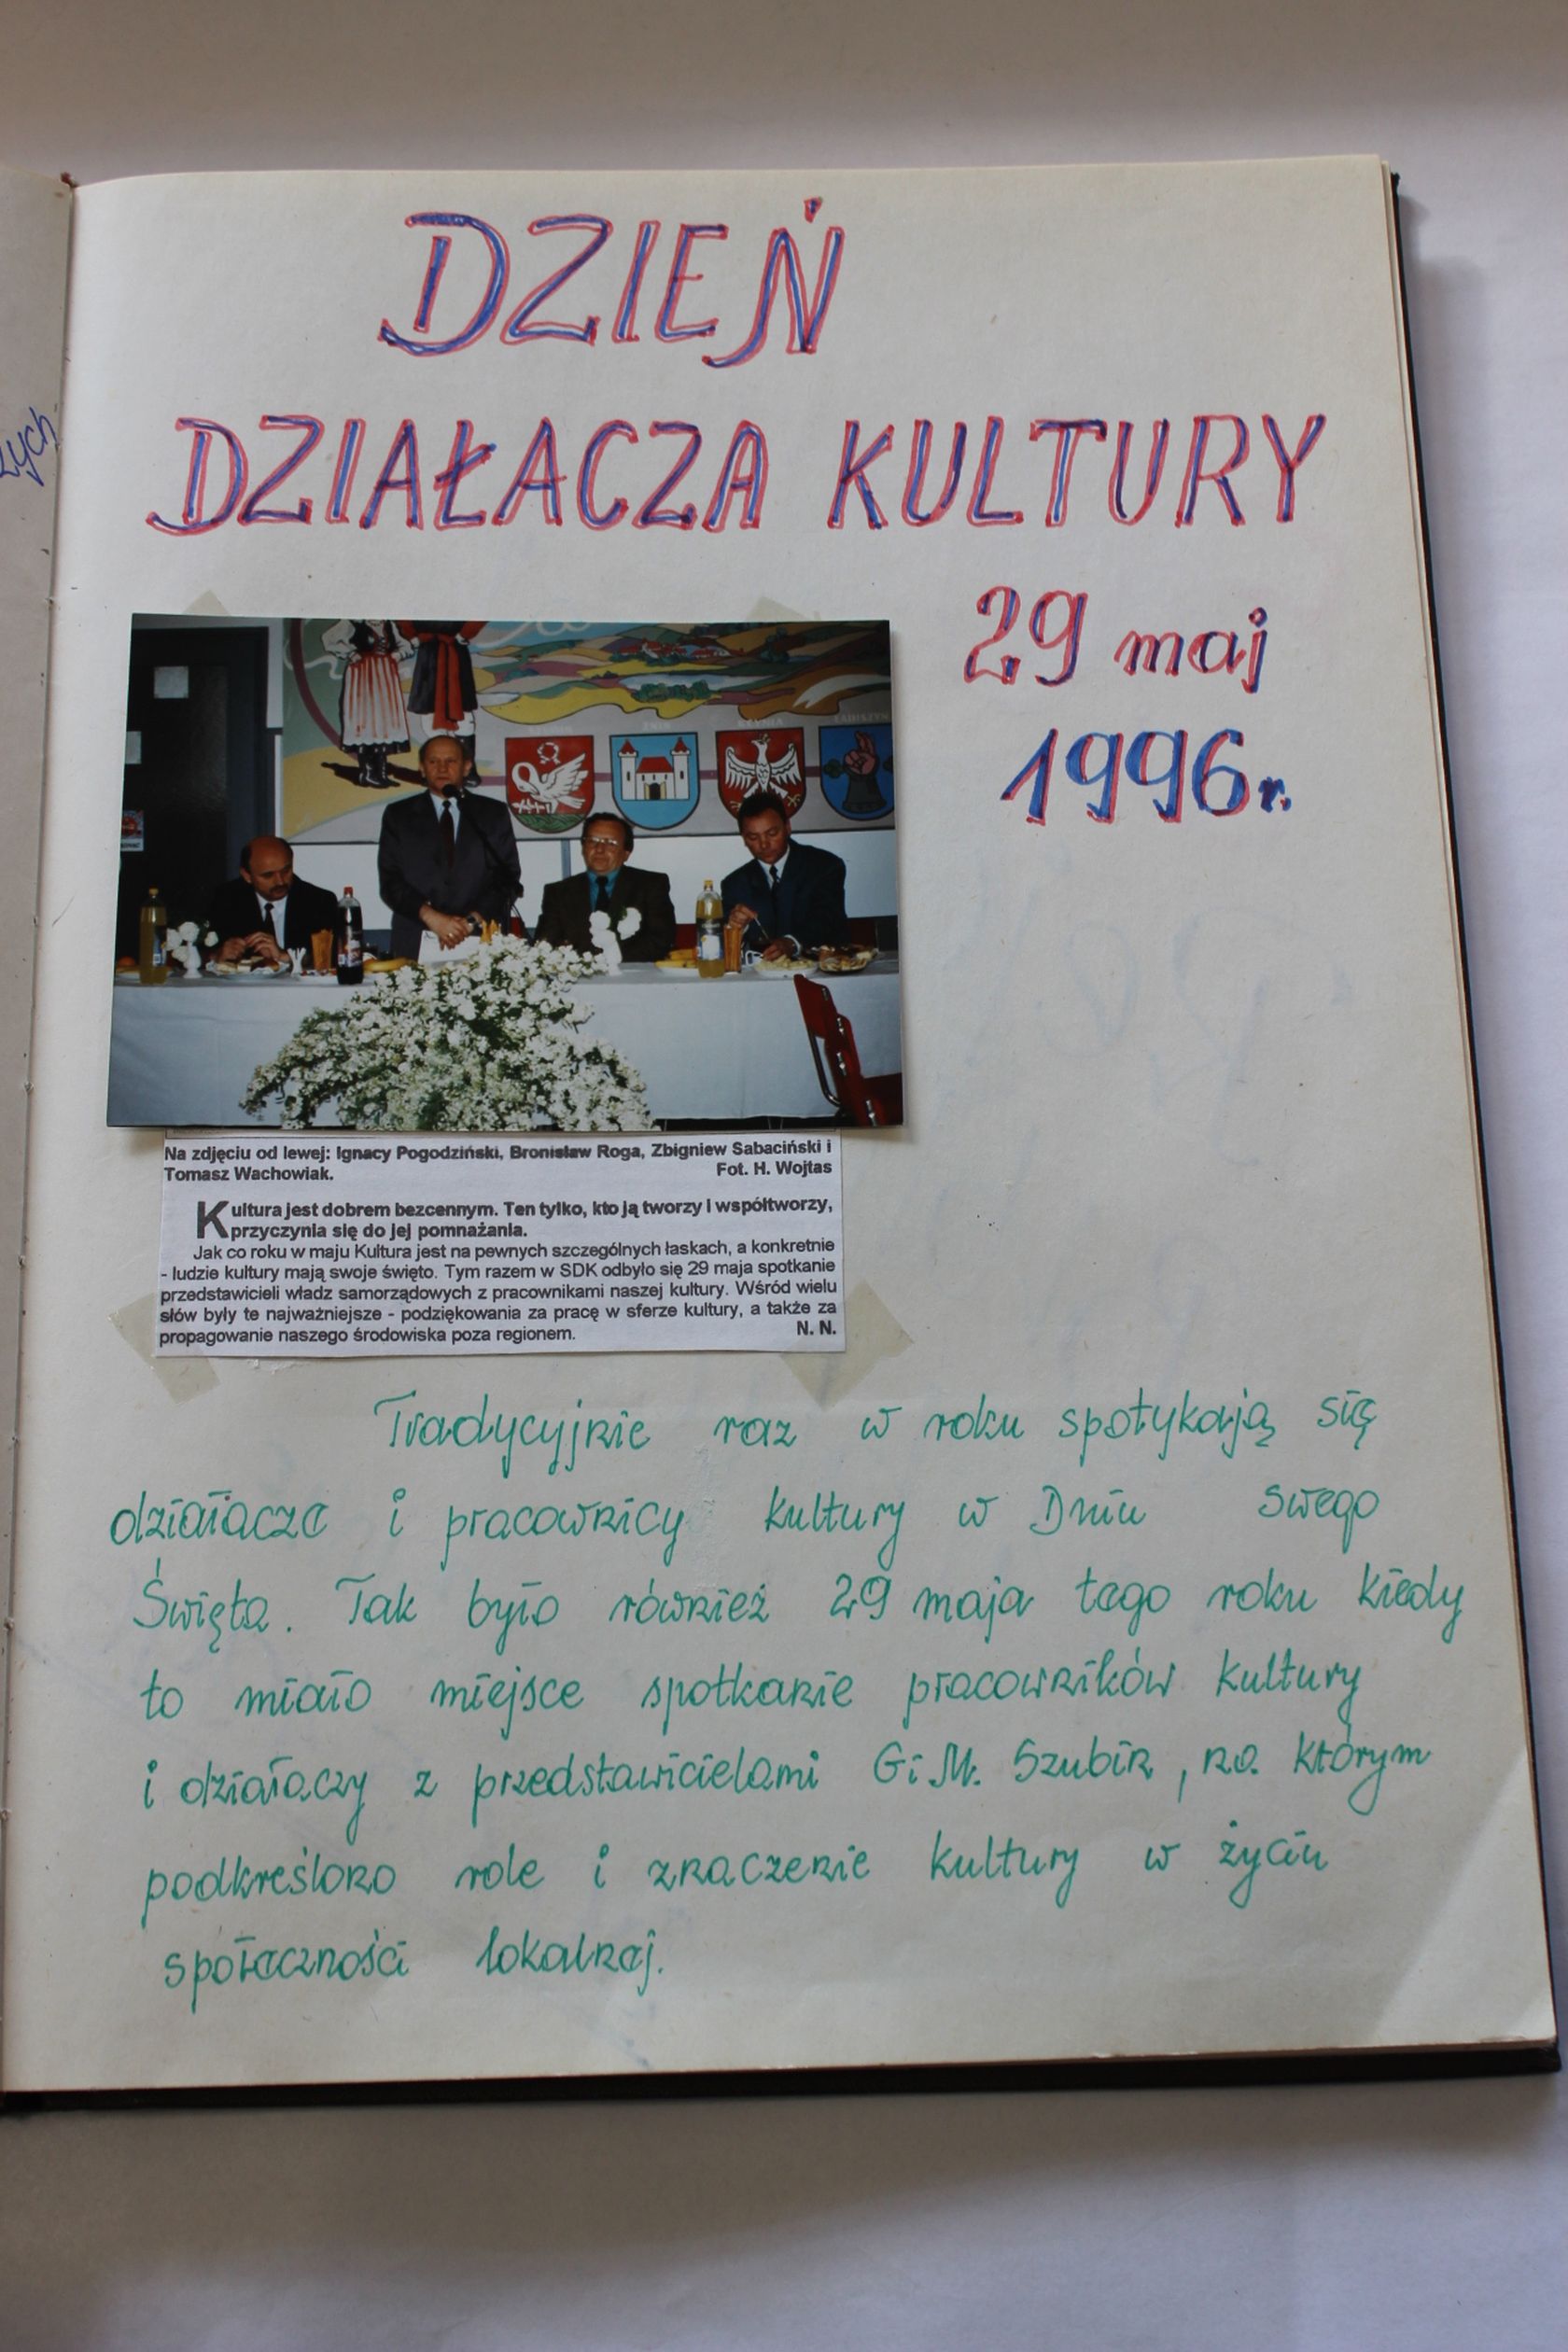 zych
DZIEŃ
DZIAŁACZA KULTURY
29 maj
1996r.
Na zdjęciu od lewej: Ignacy Pogodziński, Bronisław Roga, Zbigniew Sabaciński i
Tomasz Wachowiak. Fot. H. Wojtas
Kultura jest dobrem bezcennym. Ten tylko, kto ją tworzy i współtworzy,
przyczynia się do jej pomnażania.
Jak co roku w maju Kultura jest na pewnych szczególnych łaskach, a konkretnie
- ludzie kultury mają swoje święto. Tym razem w SDK odbyło się 29 maja spotkanie
przedstawicieli władz samorządowych z pracownikami naszej kultury. Wśród wielu
słów były te najważniejsze - podziękowania za pracę w sferze kultury, a także za
propagowanie naszego środowiska poza regionem. N. N.
Tradycyjnie raz w roku spotykają się
działacze i pracownicy kultury w Dniu swego
Święta. Tak było również 29 maja tego roku kiedy
to miało miejsce spotkanie pracowników kultury
i działaczy z przedstawicielami G i M. Szubin, na którym
podkreślono role i znaczenie kultury w życiu
społeczności lokalnej.